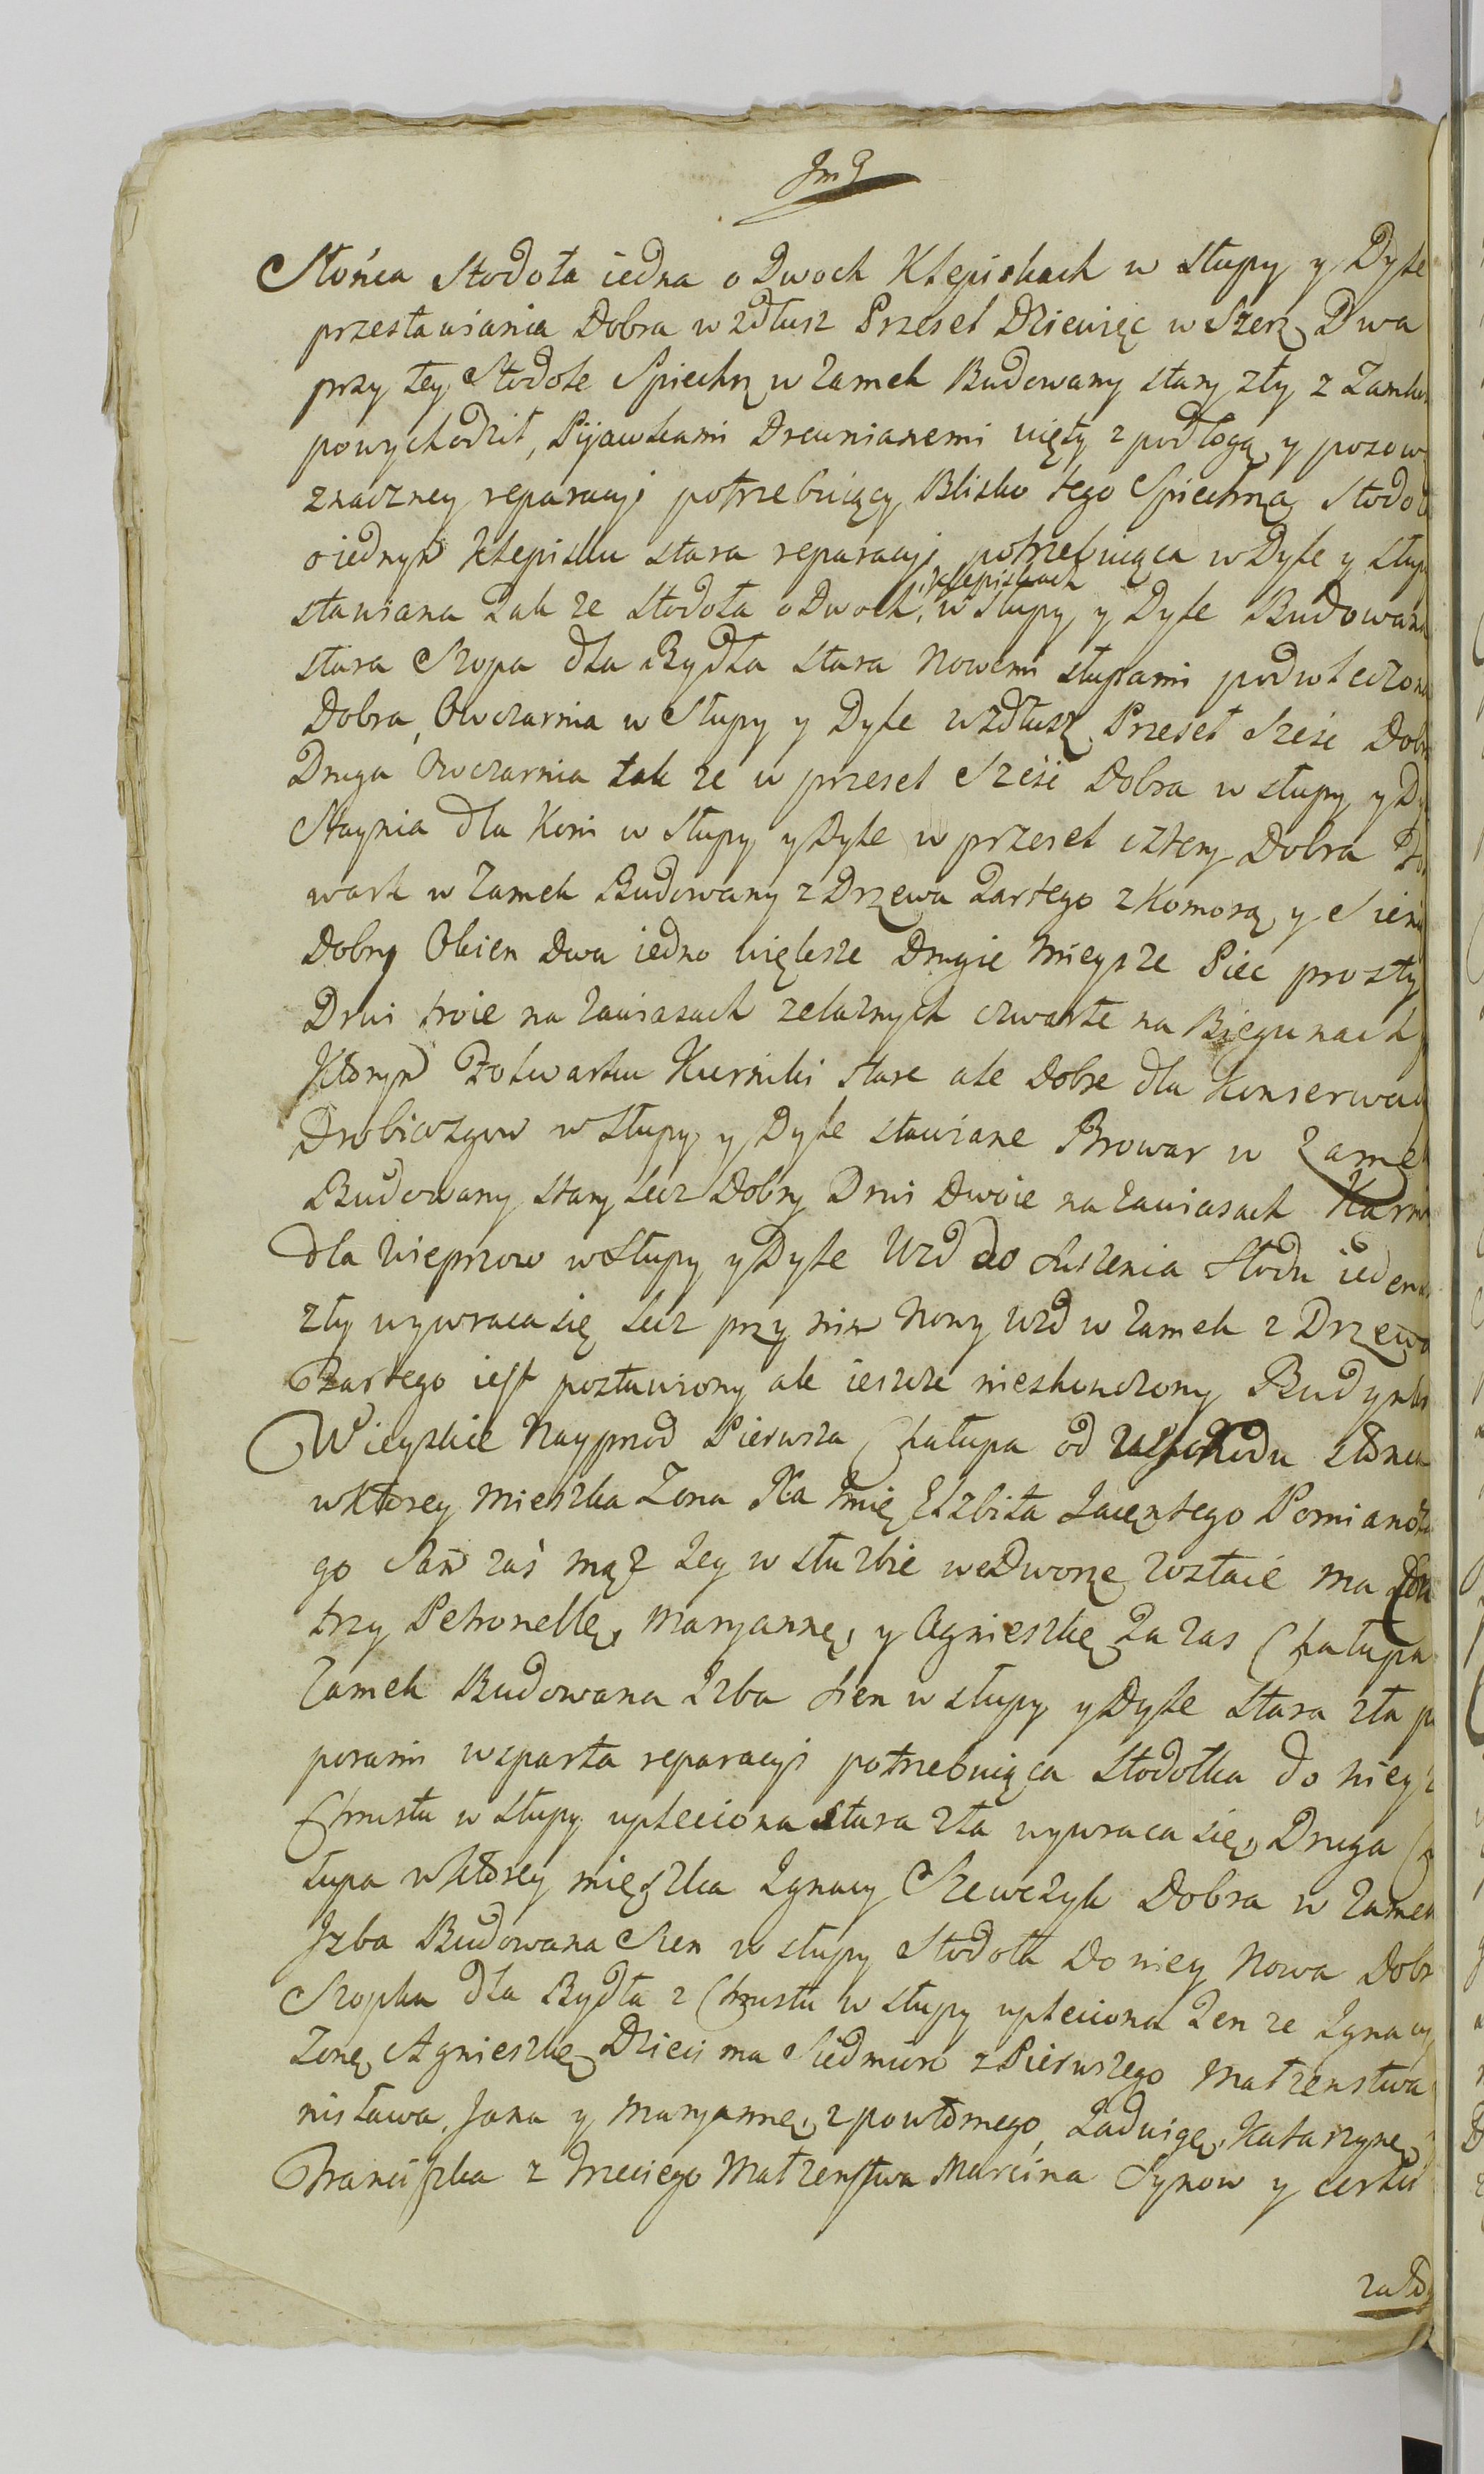 Słońca Stodoła iedna o Dwoch Klepiskach w słupy y Dyle
przestawiania Dobra w zdłusz Przeseł Dziewięc w Szerz Dwa
przy tey Stodole Spiechrz w zamek Budowany stary zły z Zamkow
powychodził, Pijawkami Drewnianemi uięty z podłogą y pozow
znaczney reparacyi potrzebuiący Blisko tego Spiechrza Stodoła
o iednym klepisku stara reparacyi potrzebuiąca w Dyle y słupy
klepiskach
stawiana Tak ze stodoła o Dwoch w słupy y Dyle Budowana
stara Szopa dla Bydła stara Nowemi słupami podwleczona
Dobra, Owczarnia w Słupy y Dyle wzdłusz Przeseł Sześć Dobra
Druga Owczarnia tak ze w przeseł Sześć Dobra w słupy y Dy
Staynia dla Koni w Słupy y Dyle w przeseł cztery Dobra Fol
wark w zamek Budowany z Drzewa Tartego z Komorą y Sienią
Dobry Okien Dwa iedno większe Drugie Mieysze Piec prosty
Drwi troie na zawiasach zelaznych czwarte na Biegunach
Którym Folwarku Kurniki stare ale Dobre dla konserwacy
Drobiazgow w Słupy y Dyle stawiane Browar w zamek
Budowany stary lecz Dobry Drwi Dwoie na zawiasach Karmi
dla wieprzow w Słupy y Dyle Ozd do suszenia Słodu ieden
zły wywraca się lecz przy nim Nowy Ozd w zamek z Drzewa
Tartego iest postawiony ale ieszcze nieskonczony Budynki
Wieyskie Nayprzod Pierwsza Chałupa od zachodu Słonca
w ktorey Mieszka Zona Na Imię Elzbita Jacentego Pomianoski
go Sam zaś mąz Jey w słuzbie we Dworze zostaie ma
trzy Petronellę, Maryannę, y Agnieszkę Ta zas Chałupa
Zamek Budowana Izba sien w słupy y Dyle stara zła po
porami wsparta reparacyi potrzebuiąca Stodołka do niey z
Chrustu w słupy upleciona stara zła wywraca się, Druga Cha
łupa w ktorey mięszka Ignacy Szewczyk Dobra w Zamek
Izba Budowana Sien w słupy Stodoła Do niey Nowa Dobra
Szopka dla Bydła z Chrustu w słupy upleciona Ten ze Ignacy
Zonę Agnieszkę Dzieci ma Siedmioro z Pierwszego Małzenstwa
nisława, Jana y Maryannę, z powtórnego, Jadwigę, Katarzynę,
Franciszka z trzeciego Małzenstwa Marcina Synow y corki